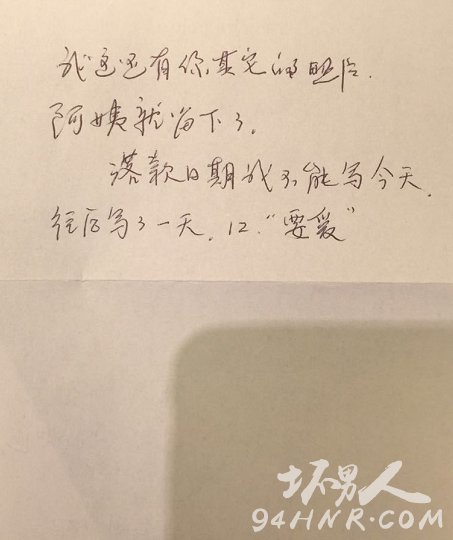 我这还有你其它的照片.
阿姨就留下了.
落款日期我不能写今天.
往后写了一天. 12. "要爱"
坏男人
94HNR.COM